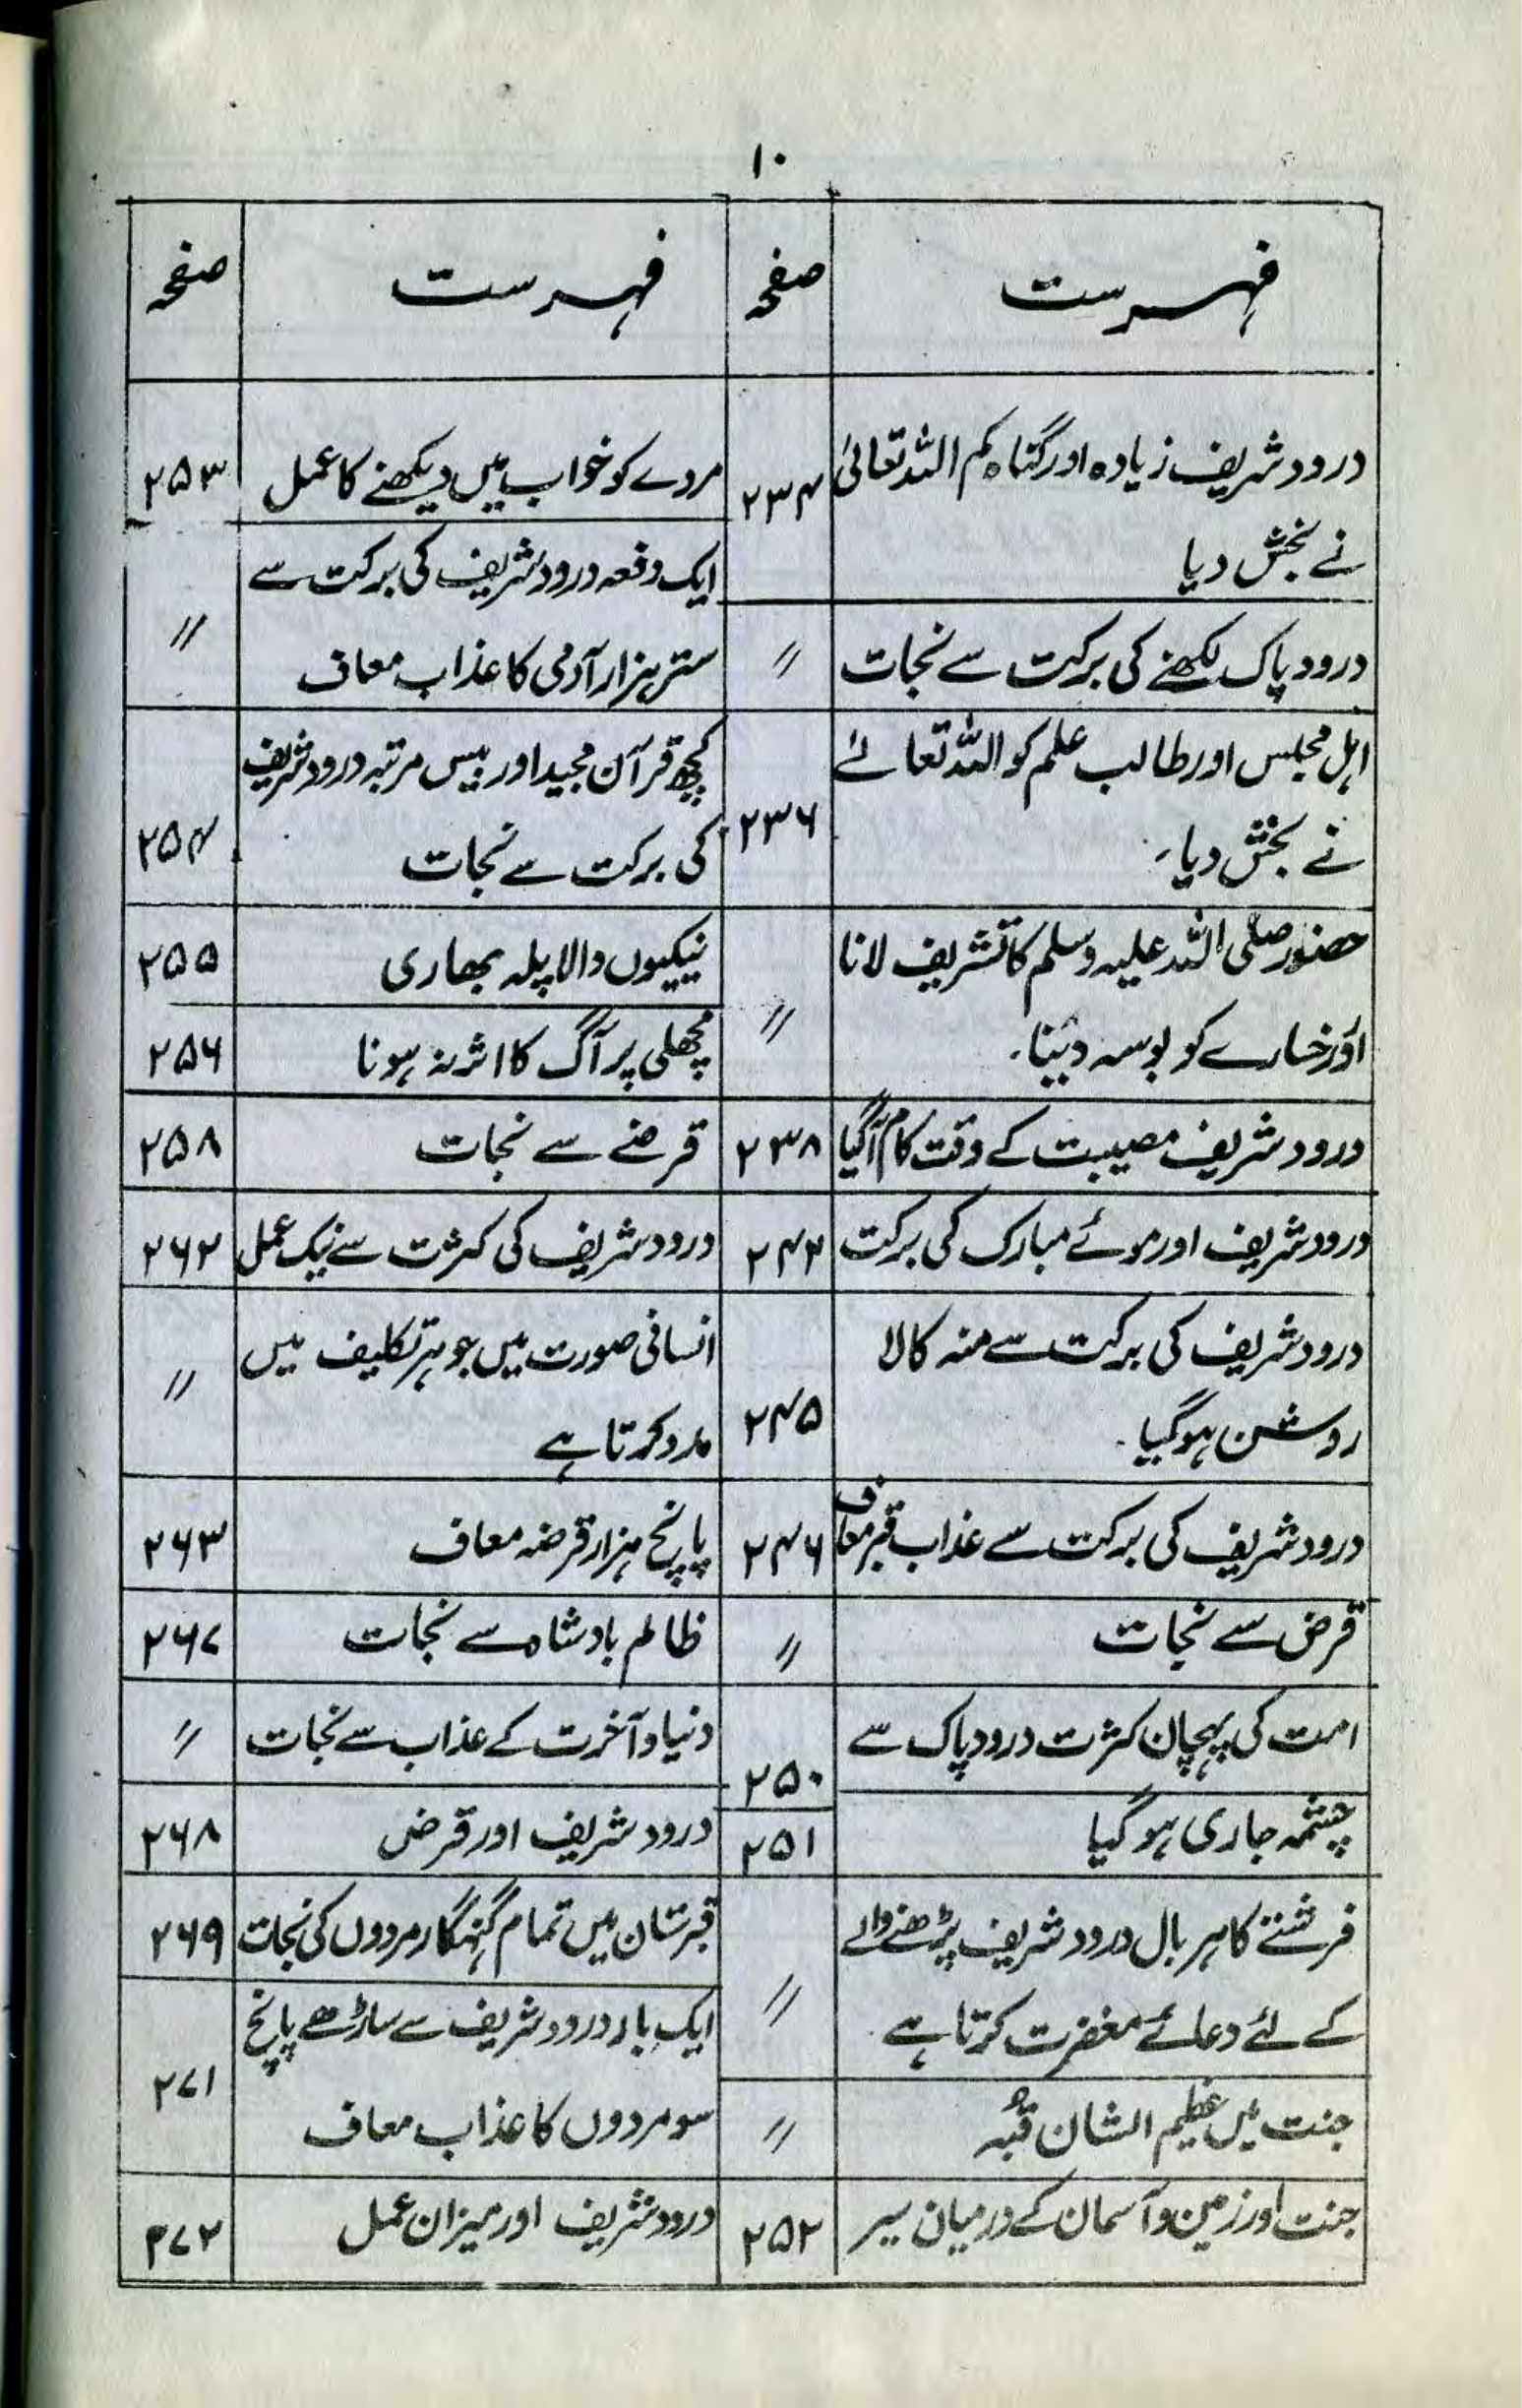 ۱۰
فہرست
صفحہ
درود شریف زیادہ اور گناہ کم اللہ تعالیٰ
۲۳۴
نے بخش دیا
درود پاک لکھنے کی برکت سے نجات
〃
اہل مجلس اور طالب علم کو اللہ تعالےٰ
۲۳۶
نے بخش دیا۔
حضور صلی اللہ علیہ وسلم کا تشریف لانا
〃
اور رخسارے کو بوسہ دینا۔
درود شریف مصیبت کے وقت کام آگیا
۲۳۸
درود شریف اور موئے مبارک کی برکت
۲۴۲
درود شریف کی برکت سے منہ کالا
۲۴۵
روشن ہوگیا۔
درود شریف کی برکت سے عذاب قبر معاف
۲۴۶
قرض سے نجات
〃
امت کی پہچان کثرت درود پاک سے
۲۵۰
چشمہ جاری ہوگیا
۲۵۱
فرشتے کا ہر بال درود شریف پڑھنے والے
〃
کے لئے دعائے مغفرت کرتا ہے۔
جنت میں عظیم الشان قبّہ
〃
جنت اور زمین و آسمان کے درمیان سیر
۲۵۲
فہرست
صفحہ
مردے کو خواب میں دیکھنے کا عمل
۲۵۳
ایک دفعہ درود شریف کی برکت سے
〃
ستر ہزار آدمی کا عذاب معاف
کچھ قرآن مجید اور بیس مرتبہ درود شریف
۲۵۴
کی برکت سے نجات
نیکیوں والا پلہ بھاری
۲۵۵
مچھلی پر آگ کا اثر نہ ہونا
۲۵۶
قرضے سے نجات
۲۵۸
درود شریف کی کثرت سے نیک عمل
۲۶۲
انسانی صورت میں جو ہر تکلیف میں
〃
مدد کرتا ہے
پانچ ہزار قرضہ معاف
۲۶۳
ظالم بادشاہ سے نجات
۲۶۷
دنیا و آخرت کے عذاب سے نجات
〃
درود شریف اور قرض
۲۶۸
قبرستان میں تمام گنہگار مردوں کی نجات
۲۶۹
ایک بار درود شریف سے ساڑھے پانچ
۲۷۱
سو مردوں کا عذاب معاف
درود شریف اور میزان عمل
۲۷۲